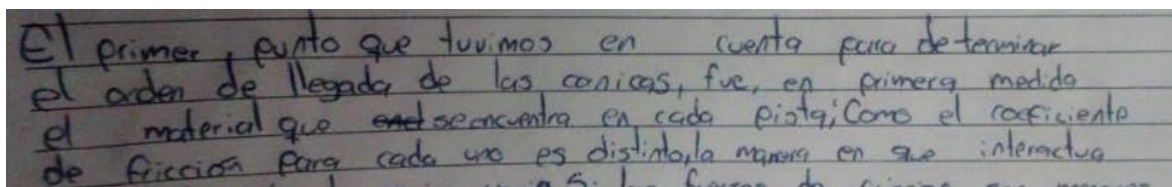 El primer, punto que tuvimos en cuenta para determinar
el orden de llegada de las canicas, fue, en primera medida
el material que se encuentra en cada pista; Como el coeficiente
de fricción para cada uno es distinto, la manera en que interactua